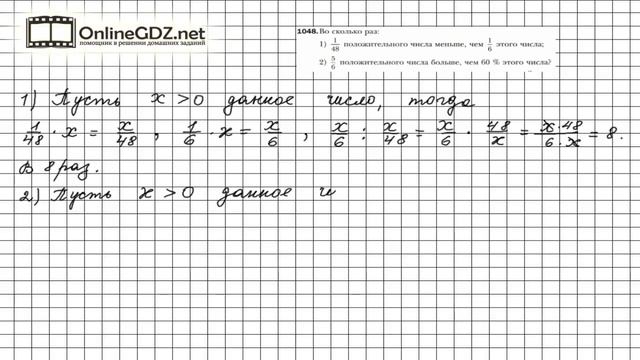 OnlineGDZ.net
помощник в решении домашних заданий
1048. Во сколько раз:
1) 1/48 положительного числа меньше, чем 1/6 этого числа;
2) 5/6 положительного числа больше, чем 60 % этого числа?
1) Пусть x > 0 данное число, тогда
1/48 · x = x/48 , 1/6 · x = x/6 , x/6 : x/48 = x/6 · 48/x = x·48/6·x = 8.
В 8 раз.
2) Пусть x > 0 данное чи